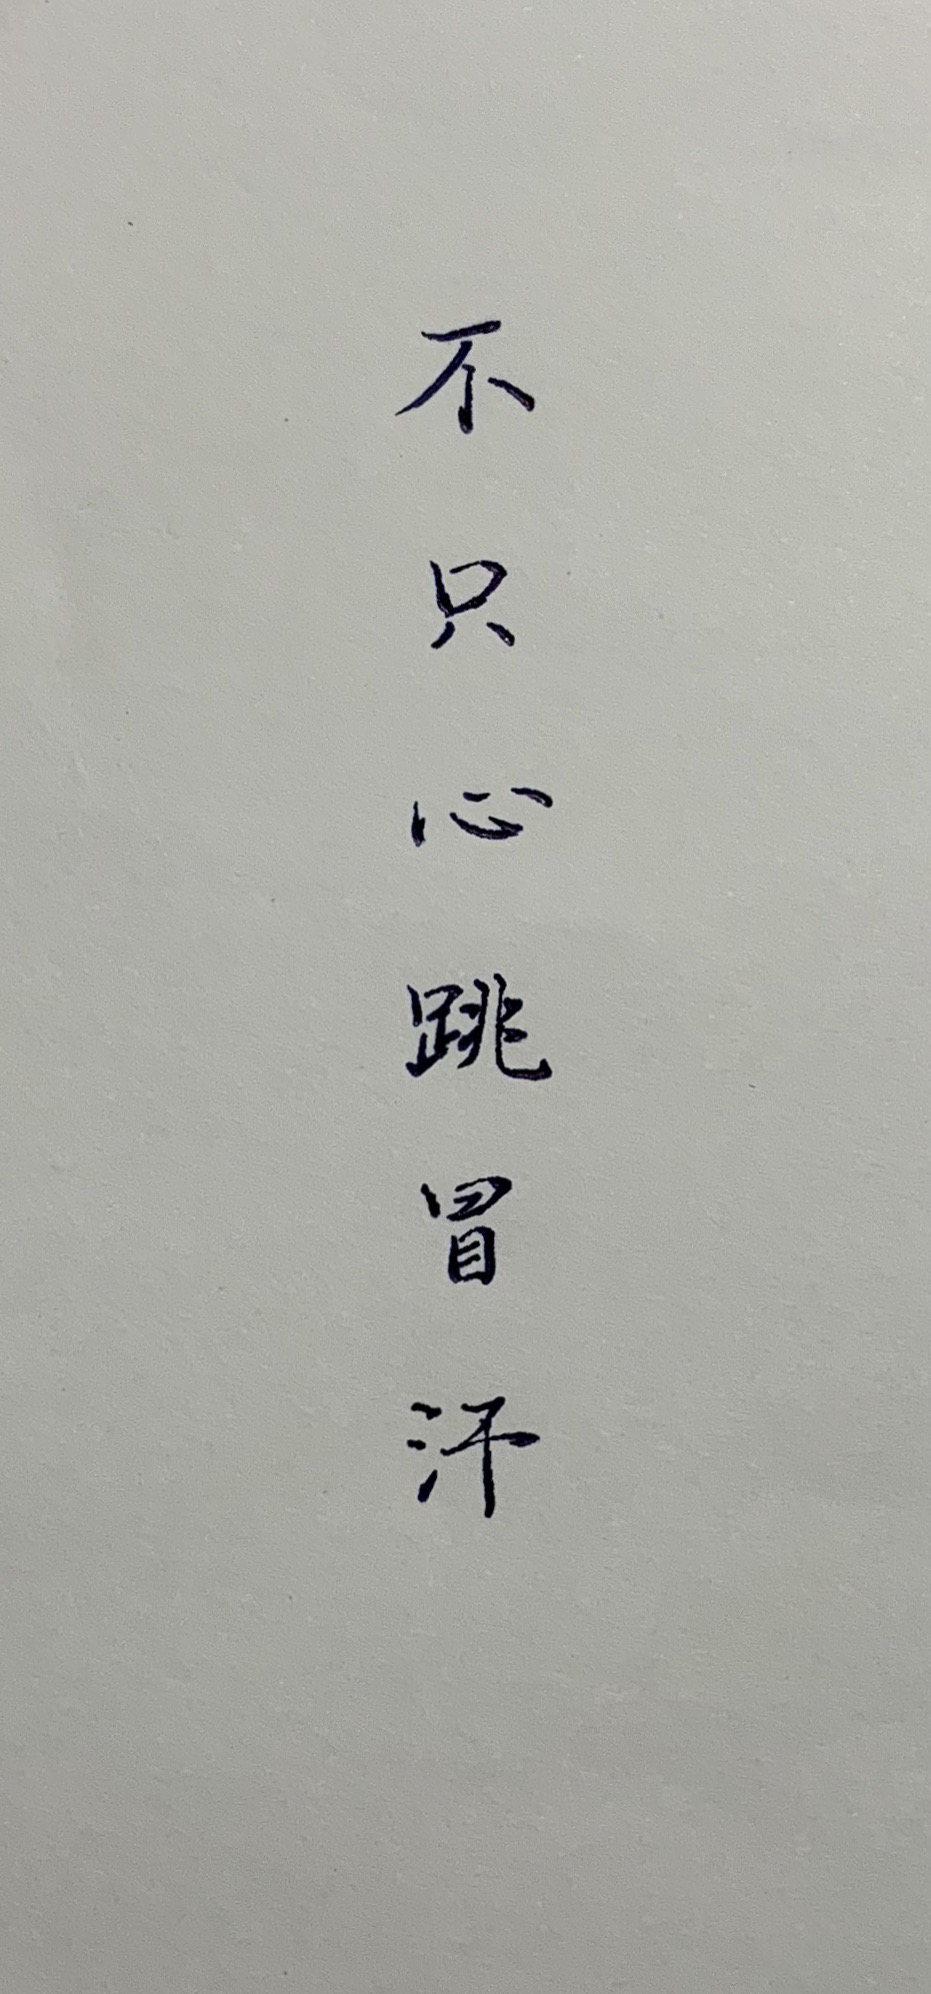 不只心跳冒汗